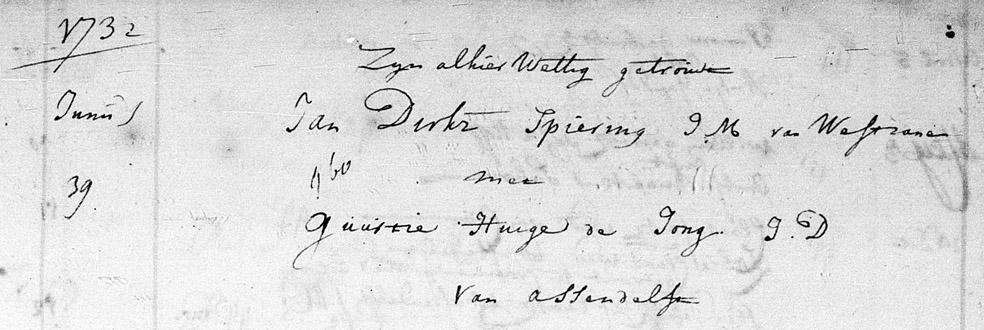 1732
Zyn alhier Wettig getrouwt
Junius
Jan Dirkz Spiering J.M van Wastzane
39.
met
Guurtie Huige de Jong. J.D
Van assendelft